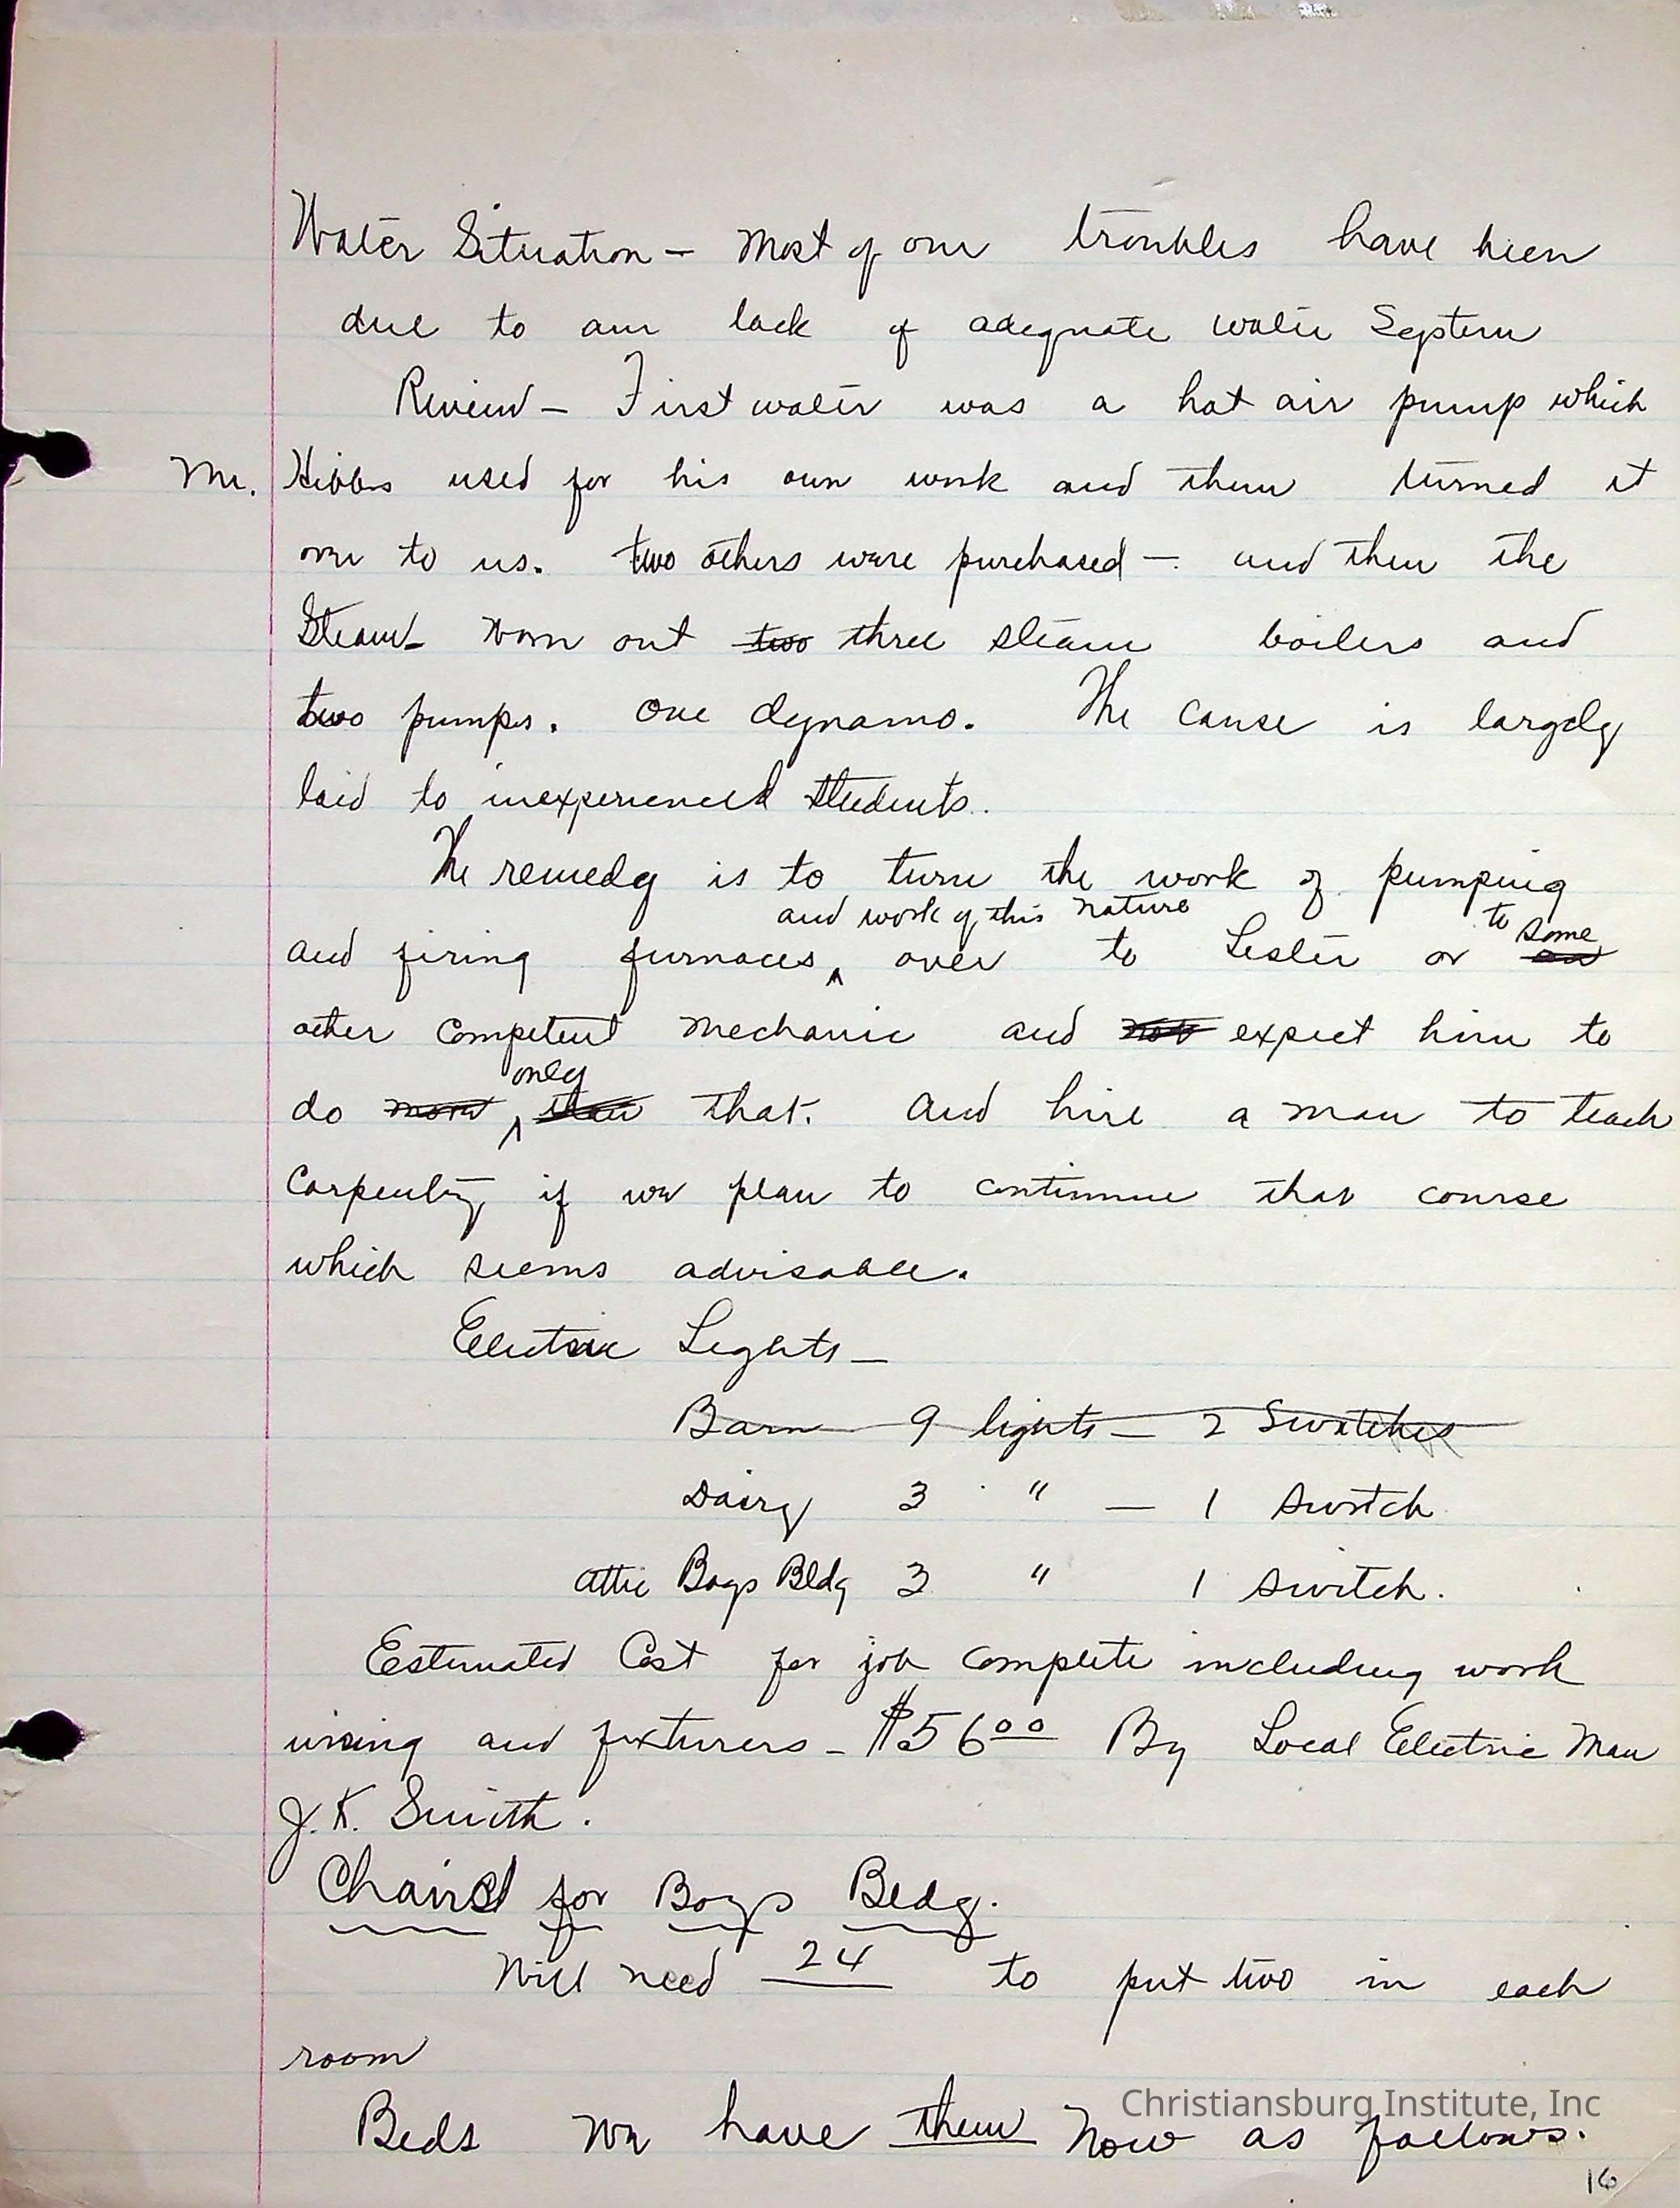 Water Situation – Most of our troubles have been
due to our lack of adequate water System
Review – First water was a hot air pump which
Mr. Hibbs used for his own work and then turned it
over to us. two others were purchased – and then the
Steam – Worn out two three steam boilers and
two pumps. One dynamo. The cause is largely
laid to inexperienced students.
The remedy is to turn the work of pumping
and work of this nature to some
and firing furnaces, over to Lester or
other competent mechanic and not expect him to
only
do more than that. And hire a man to teach
Carpentry if we plan to continue that course
which seems advisable.
Electric Lights –
Barn – 9 lights – 2 Switches
Dairy 3 " – 1 Switch
Attic Boys Bldg 3 " 1 Switch.
Estimated Cost for job complete including work
wiring and fixturers – $56 00 By Local Electric Man
J. K. Smith.
Chairs for Boys Bldg.
Will need 24 to put two in each
room
Beds We have them now as follows.
Christiansburg Institute, Inc
16